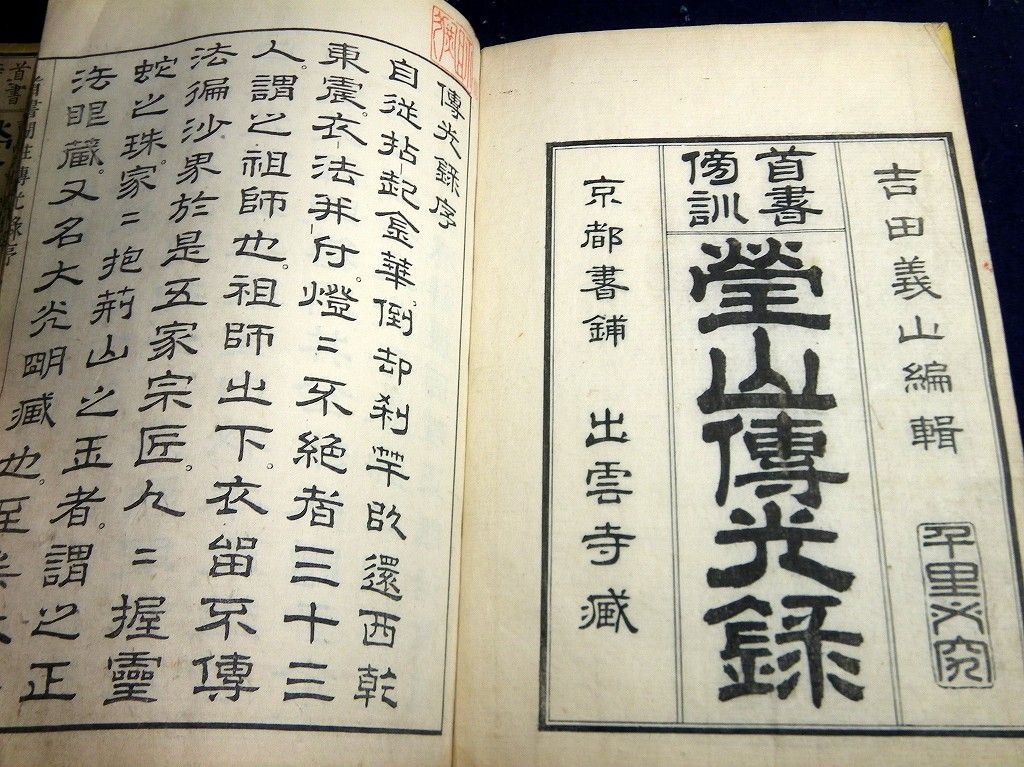 吉田義山編輯
首書
傍訓
瑩山傳光錄
京都書鋪 出雲寺藏
傳光錄序
自従拈起金華倒却刹竿以還西乾
東震。衣法并付。燈〻不絶者三十三
人。謂之祖師也。祖師㞢下。衣留不傳
法徧沙界於是五家宗匠。人〻握靈
蛇之珠。家〻抱荊山之玉者。謂之正
法眼藏。又名大光明藏也。至